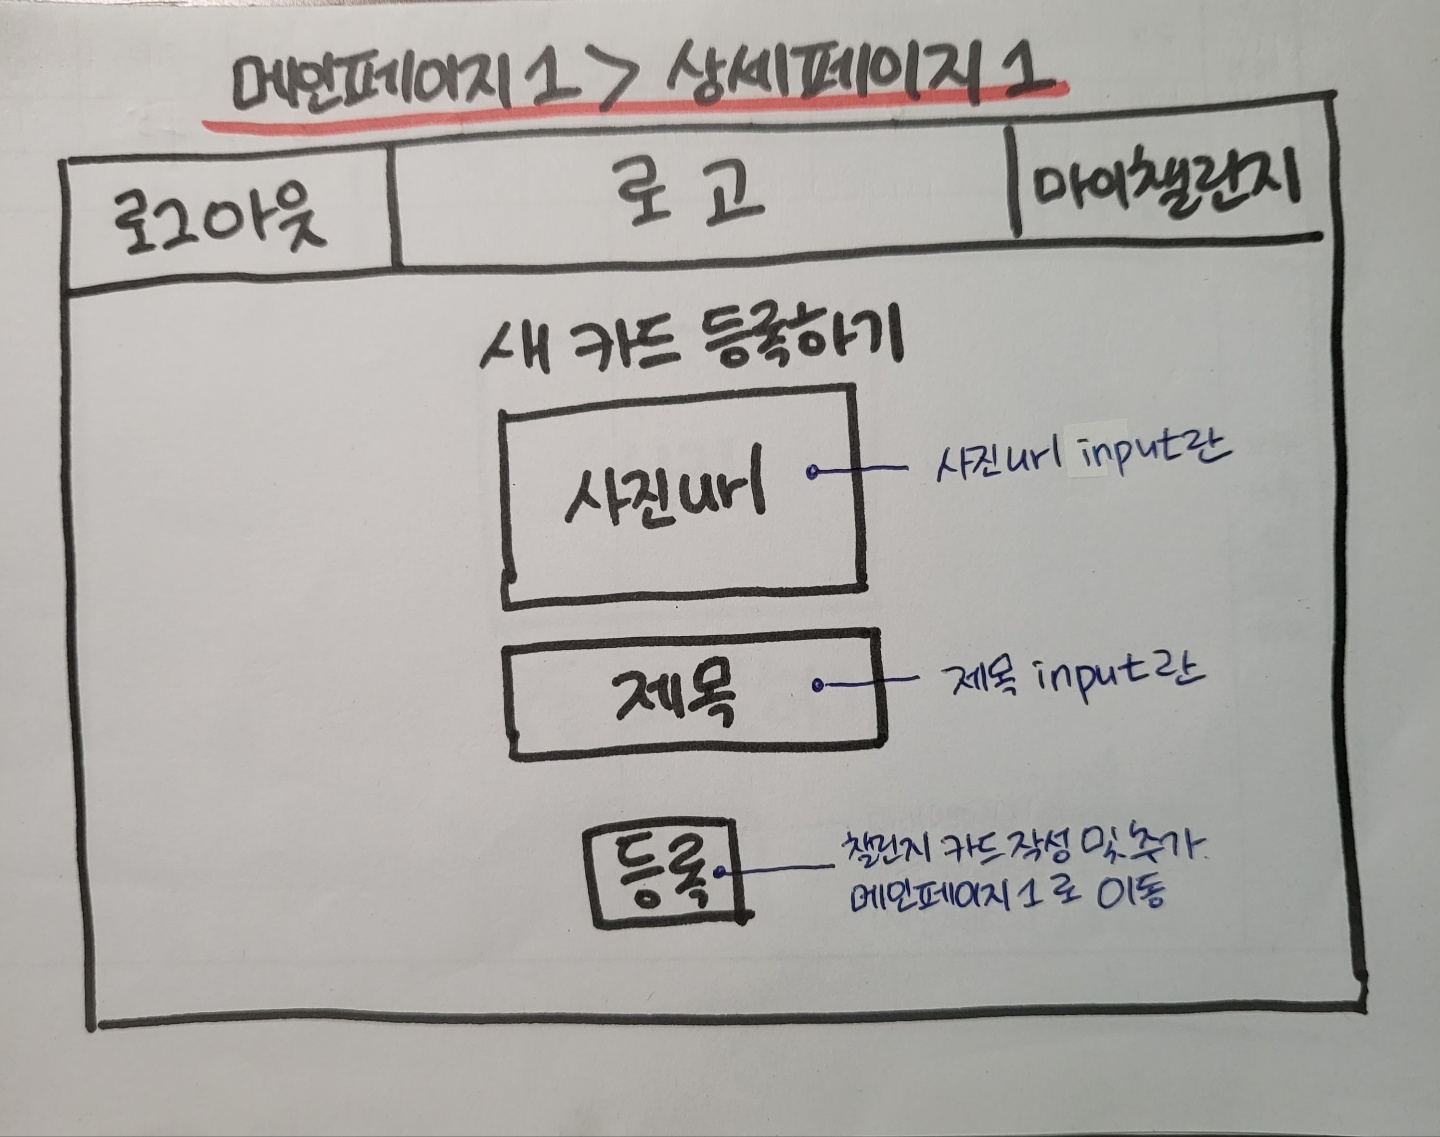 메인페이지 1 > 상세페이지 1
로그아웃 로고 마이챌린지
새 카드 등록하기
사진url
사진url input란
제목
제목 input란
등록
챌린지 카드 작성 및 추가.
메인페이지 1로 이동